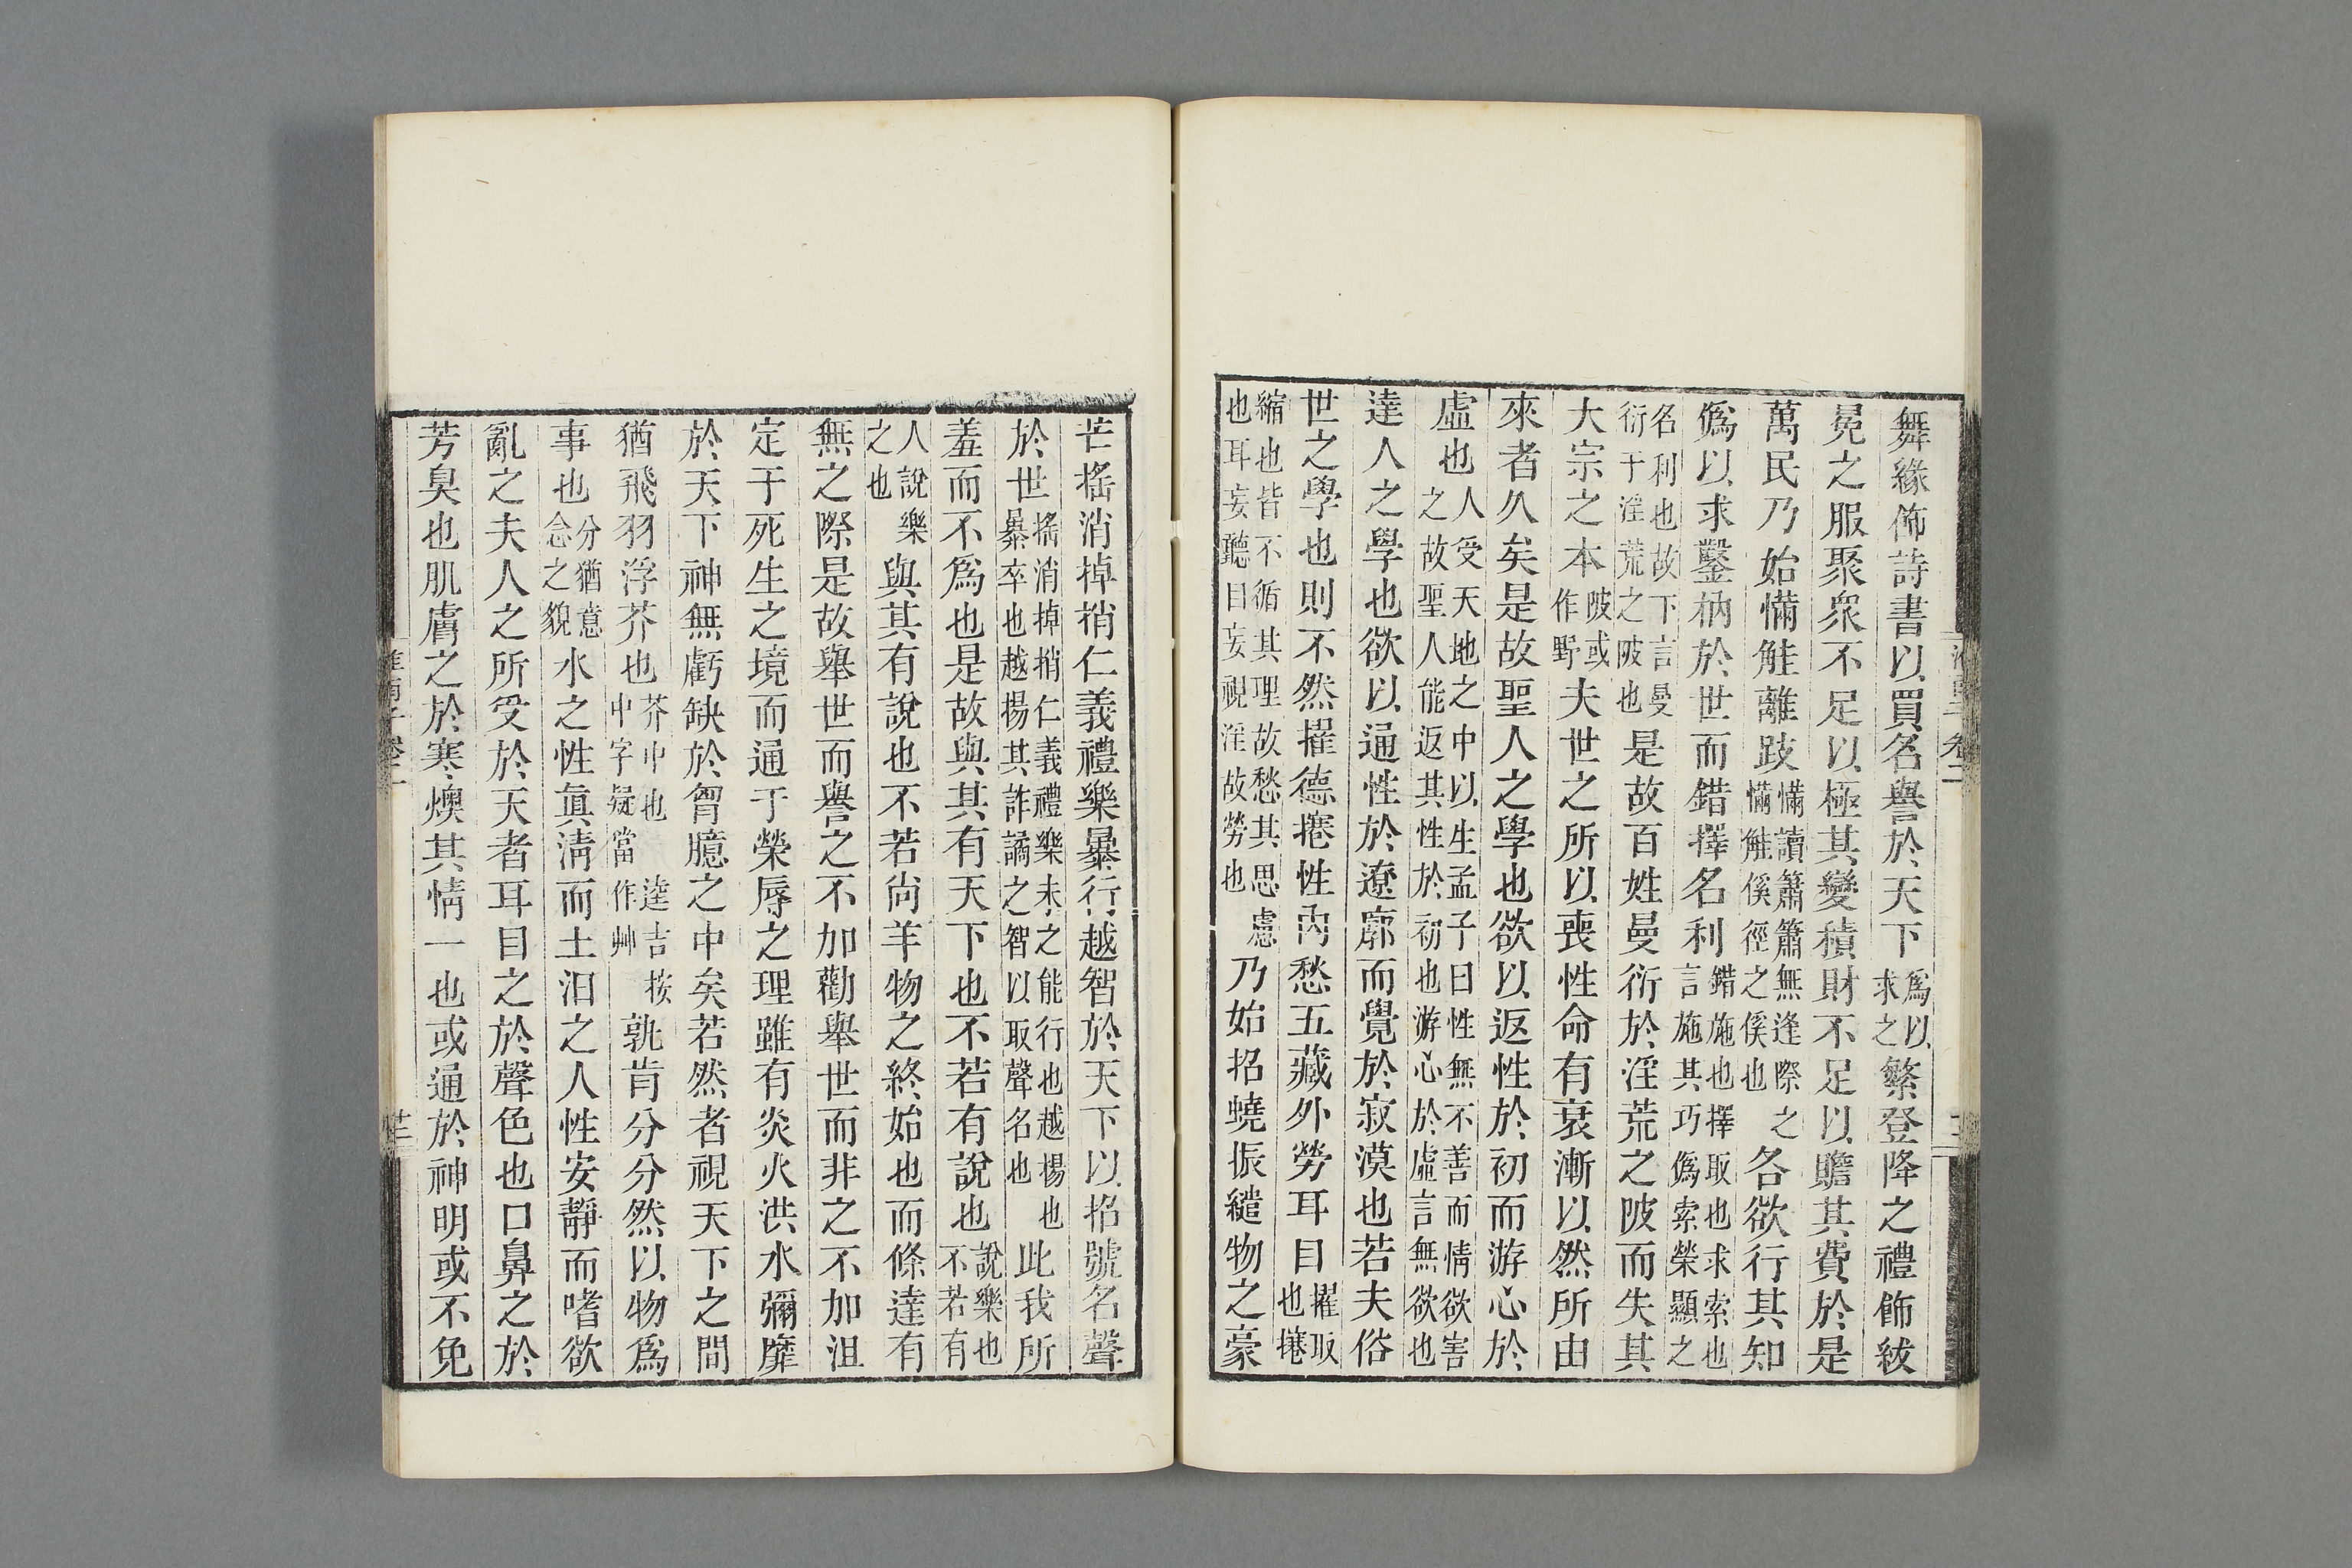 舞緣佈詩書以買名譽於天下為以求之繁登降之禮飾紱
冕之服聚眾不足以極其變積財不足以贍其費於是
萬民乃始慲觟離跂慲讀簫簫無逢際之慲觟徯徑之徯也各欲行其知
偽以求鑿枘於世而錯擇名利錯施也擇取也求索也言施其巧偽索榮顯之
名利也故下言曼衍于淫荒之陂也是故百姓曼衍於淫荒之陂而失其
大宗之本陂或作野夫世之所以喪性命有衰漸以然所由
來者久矣是故聖人之學也欲以返性於初而游心於
虛也人受天地之中以生孟子曰性無不善而情欲害之故聖人能返其性於初也游心於虛言無欲也
達人之學也欲以通性於遼廓而覺於寂漠也若夫俗
世之學也則不然擢德搼性內愁五藏外勞耳目擢取也捲
縮也皆不循其理故愁其思慮也耳妄聽目妄視淫故勞也乃始招蟯振繾物之豪
芒搖消掉捎仁義禮樂暴行越智於天下以招號名聲
於世搖消掉捎仁義禮樂未之能行也越揚也暴卒也越揚其詐譎之智以取聲名也此我所
羞而不為也是故與其有天下也不若有說也說樂也不若有
人說樂之也與其有說也不若尚羊物之終始也而條達有
無之際是故舉世而譽之不加勸舉世而非之不加沮
定于死生之境而通于榮辱之理雖有炎火洪水彌靡
於天下神無虧缺於胷臆之中矣若然者視天下之間
猶飛羽浮芥也芥中也 逵吉按中字疑當作艸孰肯分分然以物為
事也分猶意念之貌水之性真清而土汨之人性安靜而嗜欲
亂之夫人之所受於天者耳目之於聲色也口鼻之於
芳臭也肌膚之於寒燠其情一也或通於神明或不免